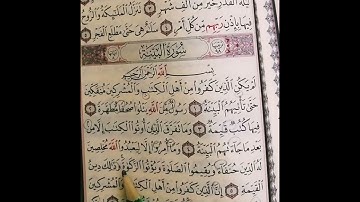 لَيْلَةُ الْقَدْرِ خَيْرٌ مِّنْ أَلْفِ شَهْرٍ ٣ تَنَزَّلُ الْمَلَٰٓئِكَةُ وَالرُّوحُ
فِيهَا بِإِذْنِ رَبِّهِم مِّن كُلِّ أَمْرٍ ٤ سَلَٰمٌ هِىَ حَتَّىٰ مَطْلَعِ الْفَجْرِ ٥
سُورَةُ الْبَيِّنَةِ
بِسْمِ اللَّهِ الرَّحْمَٰنِ الرَّحِيمِ
لَمْ يَكُنِ الَّذِينَ كَفَرُوا مِنْ أَهْلِ الْكِتَٰبِ وَالْمُشْرِكِينَ مُنفَكِّينَ
حَتَّىٰ تَأْتِيَهُمُ الْبَيِّنَةُ ١ رَسُولٌ مِّنَ اللَّهِ يَتْلُوا صُحُفًا مُّطَهَّرَةً ٢
فِيهَا كُتُبٌ قَيِّمَةٌ ٣ وَمَا تَفَرَّقَ الَّذِينَ أُوتُوا الْكِتَٰبَ إِلَّا مِنۢ
بَعْدِ مَا جَآءَتْهُمُ الْبَيِّنَةُ ٤ وَمَآ أُمِرُوٓا إِلَّا لِيَعْبُدُوا اللَّهَ مُخْلِصِينَ
لَهُ الدِّينَ حُنَفَآءَ وَيُقِيمُوا الصَّلَوٰةَ وَيُؤْتُوا الزَّكَوٰةَ وَذَٰلِكَ دِينُ
الْقَيِّمَةِ ٥ إِنَّ الَّذِينَ كَفَرُوا مِنْ أَهْلِ الْكِتَٰبِ وَالْمُشْرِكِينَ